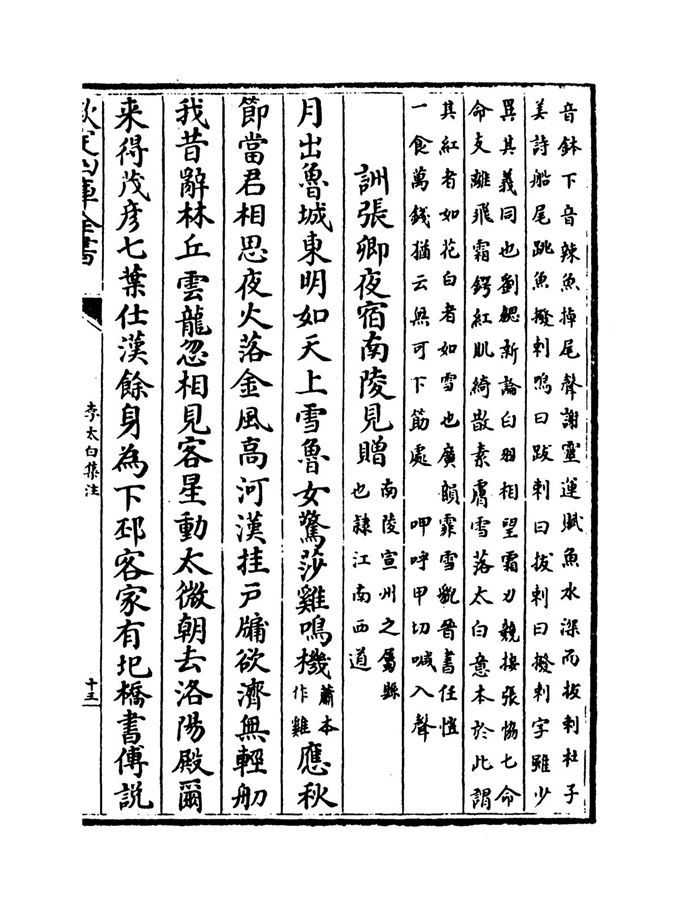 音鉢下音辣魚掉尾聲謝靈運賦魚水深而拔刺杜子
美詩船尾跳魚撥刺鳴曰跋刺曰拔刺曰撥刺字雖少
異其義同也劉勰新論白羽相望霜刃競接張協七命
命支離飛霜鍔紅肌綺散素膚雪落太白意本於此謂
其紅者如花白者如雪也廣韻霏雪貌晉書任愷
一食萬錢猶云無可下筯處　呷呼甲切喊入聲
訓張卿夜宿南陵見贈南陵宣州之屬縣
也隸江南西道
月出魯城東明如天上雪魯女驚莎雞鳴機蕭本
作雞應秋
節當君相思夜火落金風高河漢挂戶牖欲濟無輕舠
我昔辭林丘雲龍忽相見客星動太微朝去洛陽殿爾
來得茂彥七葉仕漢餘身為下邳客家有圯橋書傅說
欽定四庫全書
李太白集注
十三